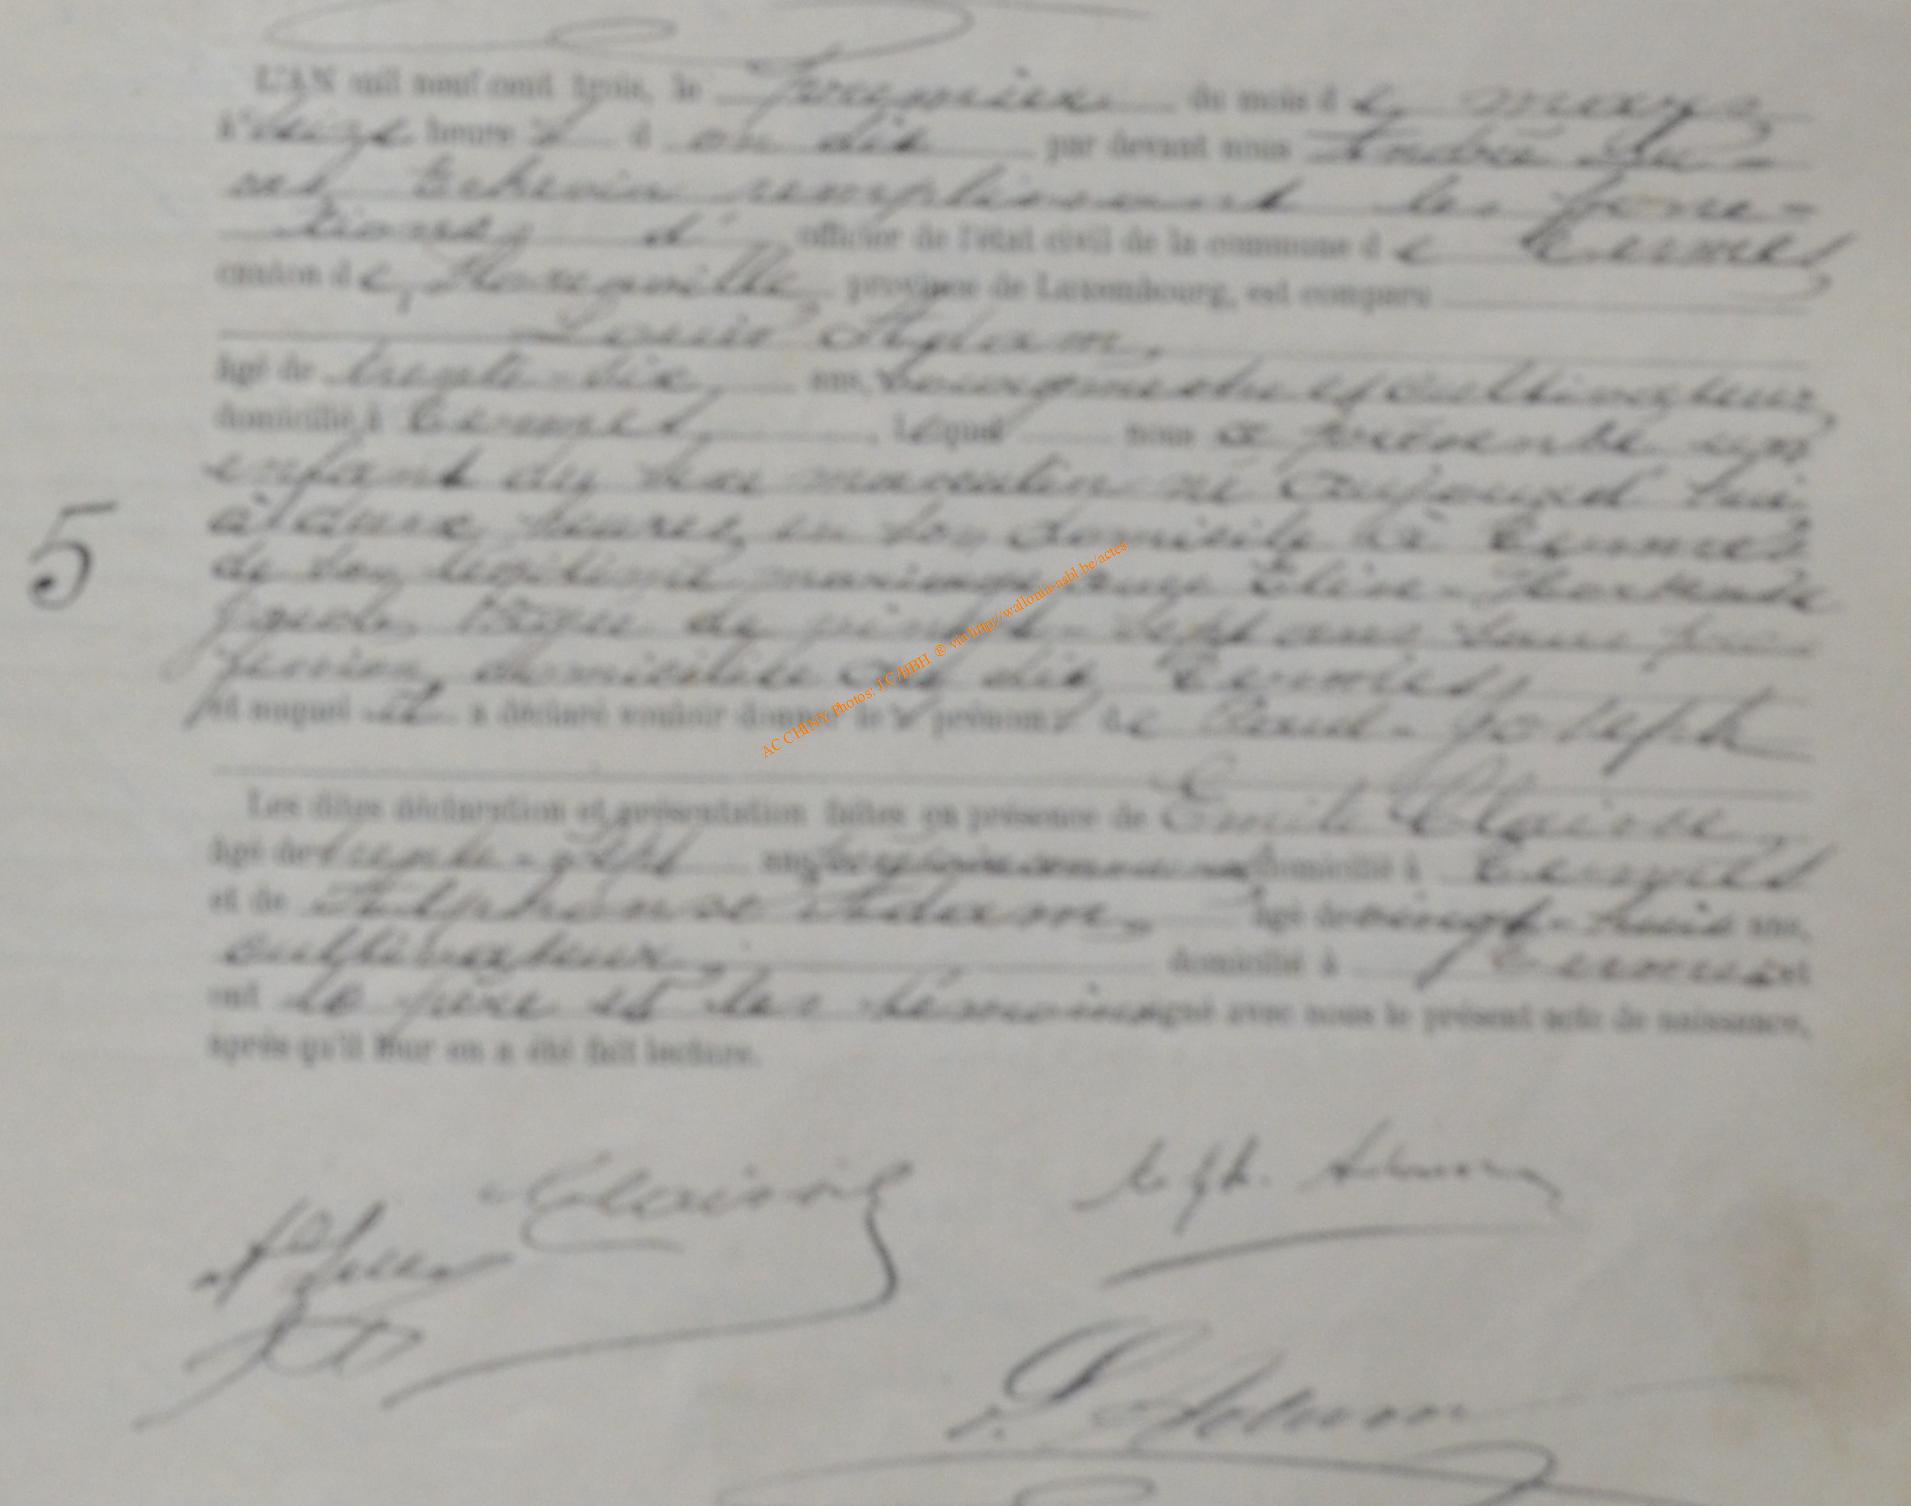 L'AN mil neuf cent trois, le premier du mois d e mars,
à heure s d du dix par devant nous André
Echevin remplissant les fonc-
tions d' officier de l'état civil de la commune d e Termes
canton d e, Florenville, province de Luxembourg, est comparu
Louis Adam,
âgé de trente-six, ans, bourgmestre et cultivateur,
domicilié à Termes, , lequel nous a présenté un
enfant du sexe masculin né aujourd'hui
à deux heures, en son domicile à Termes
de son légitime mariage avec Elise-Hortense
âgée de vingt-sept ans sans pro-
fession, domiciliée au dit Termes,
et auquel il a déclaré vouloir donner le s prénom s de Paul-Joseph
Les dites déclaration et présentation faites en présence de Emile Claisse,
âgé de trente-sept ans, domicilié à Termes
et de Alphonse Adam, âgé de vingt- ans,
cultivateur, domicilié à Termes et
ont le père et les témoins signé avec nous le présent acte de naissance,
après qu'il leur en a été fait lecture.
5
Claisse
Alph. Adam
L. Adam
AC CHINY Photos: J.C./HBH ® via http://wallonia-asbl.be/actes